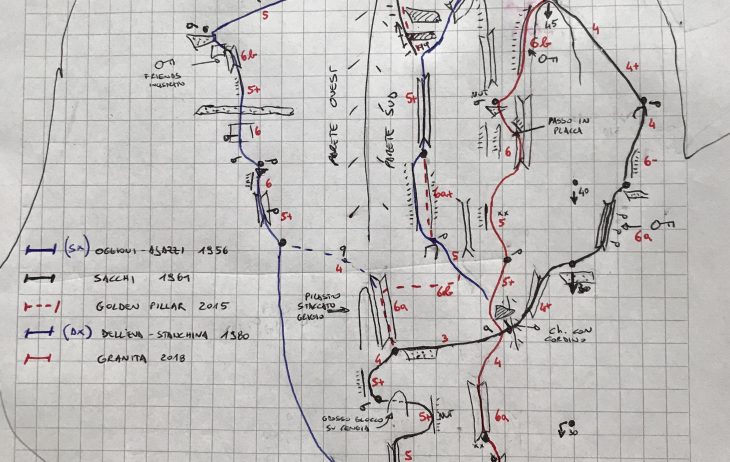 5
6b
5+
6
FRIENDS
6
5+
4
PARETE OVEST
PARETE SUD
5+
6a+
5
6b
6a
45
4
4+
4
6-
6a
40
30
PASSO IN
PLACCA
6
xx
5
5+
4+
3
4
CH. CON
CORDINO
4
5+
PILASTRO
STACCATO
GRIGIO
GROSSO BLOCCO
SU CENGIA
5+
NUT
5
6a
xx
30
(SX) OGGIONI-AJAZZI 1956
SACCHI 1961
GOLDEN PILLAR 2015
(DX) DELL'EVA-STANCHINA 1980
GRANITA 2018